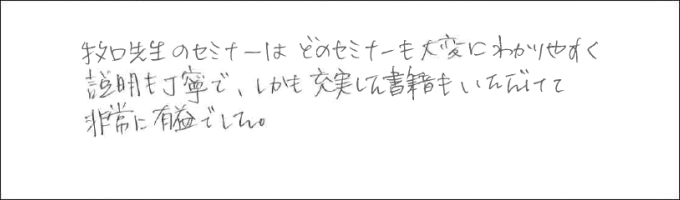 牧口先生のセミナーは どのセミナーも大変にわかりやすく
説明も丁寧で、しかも充実した書籍もいただけて
非常に有益でした。